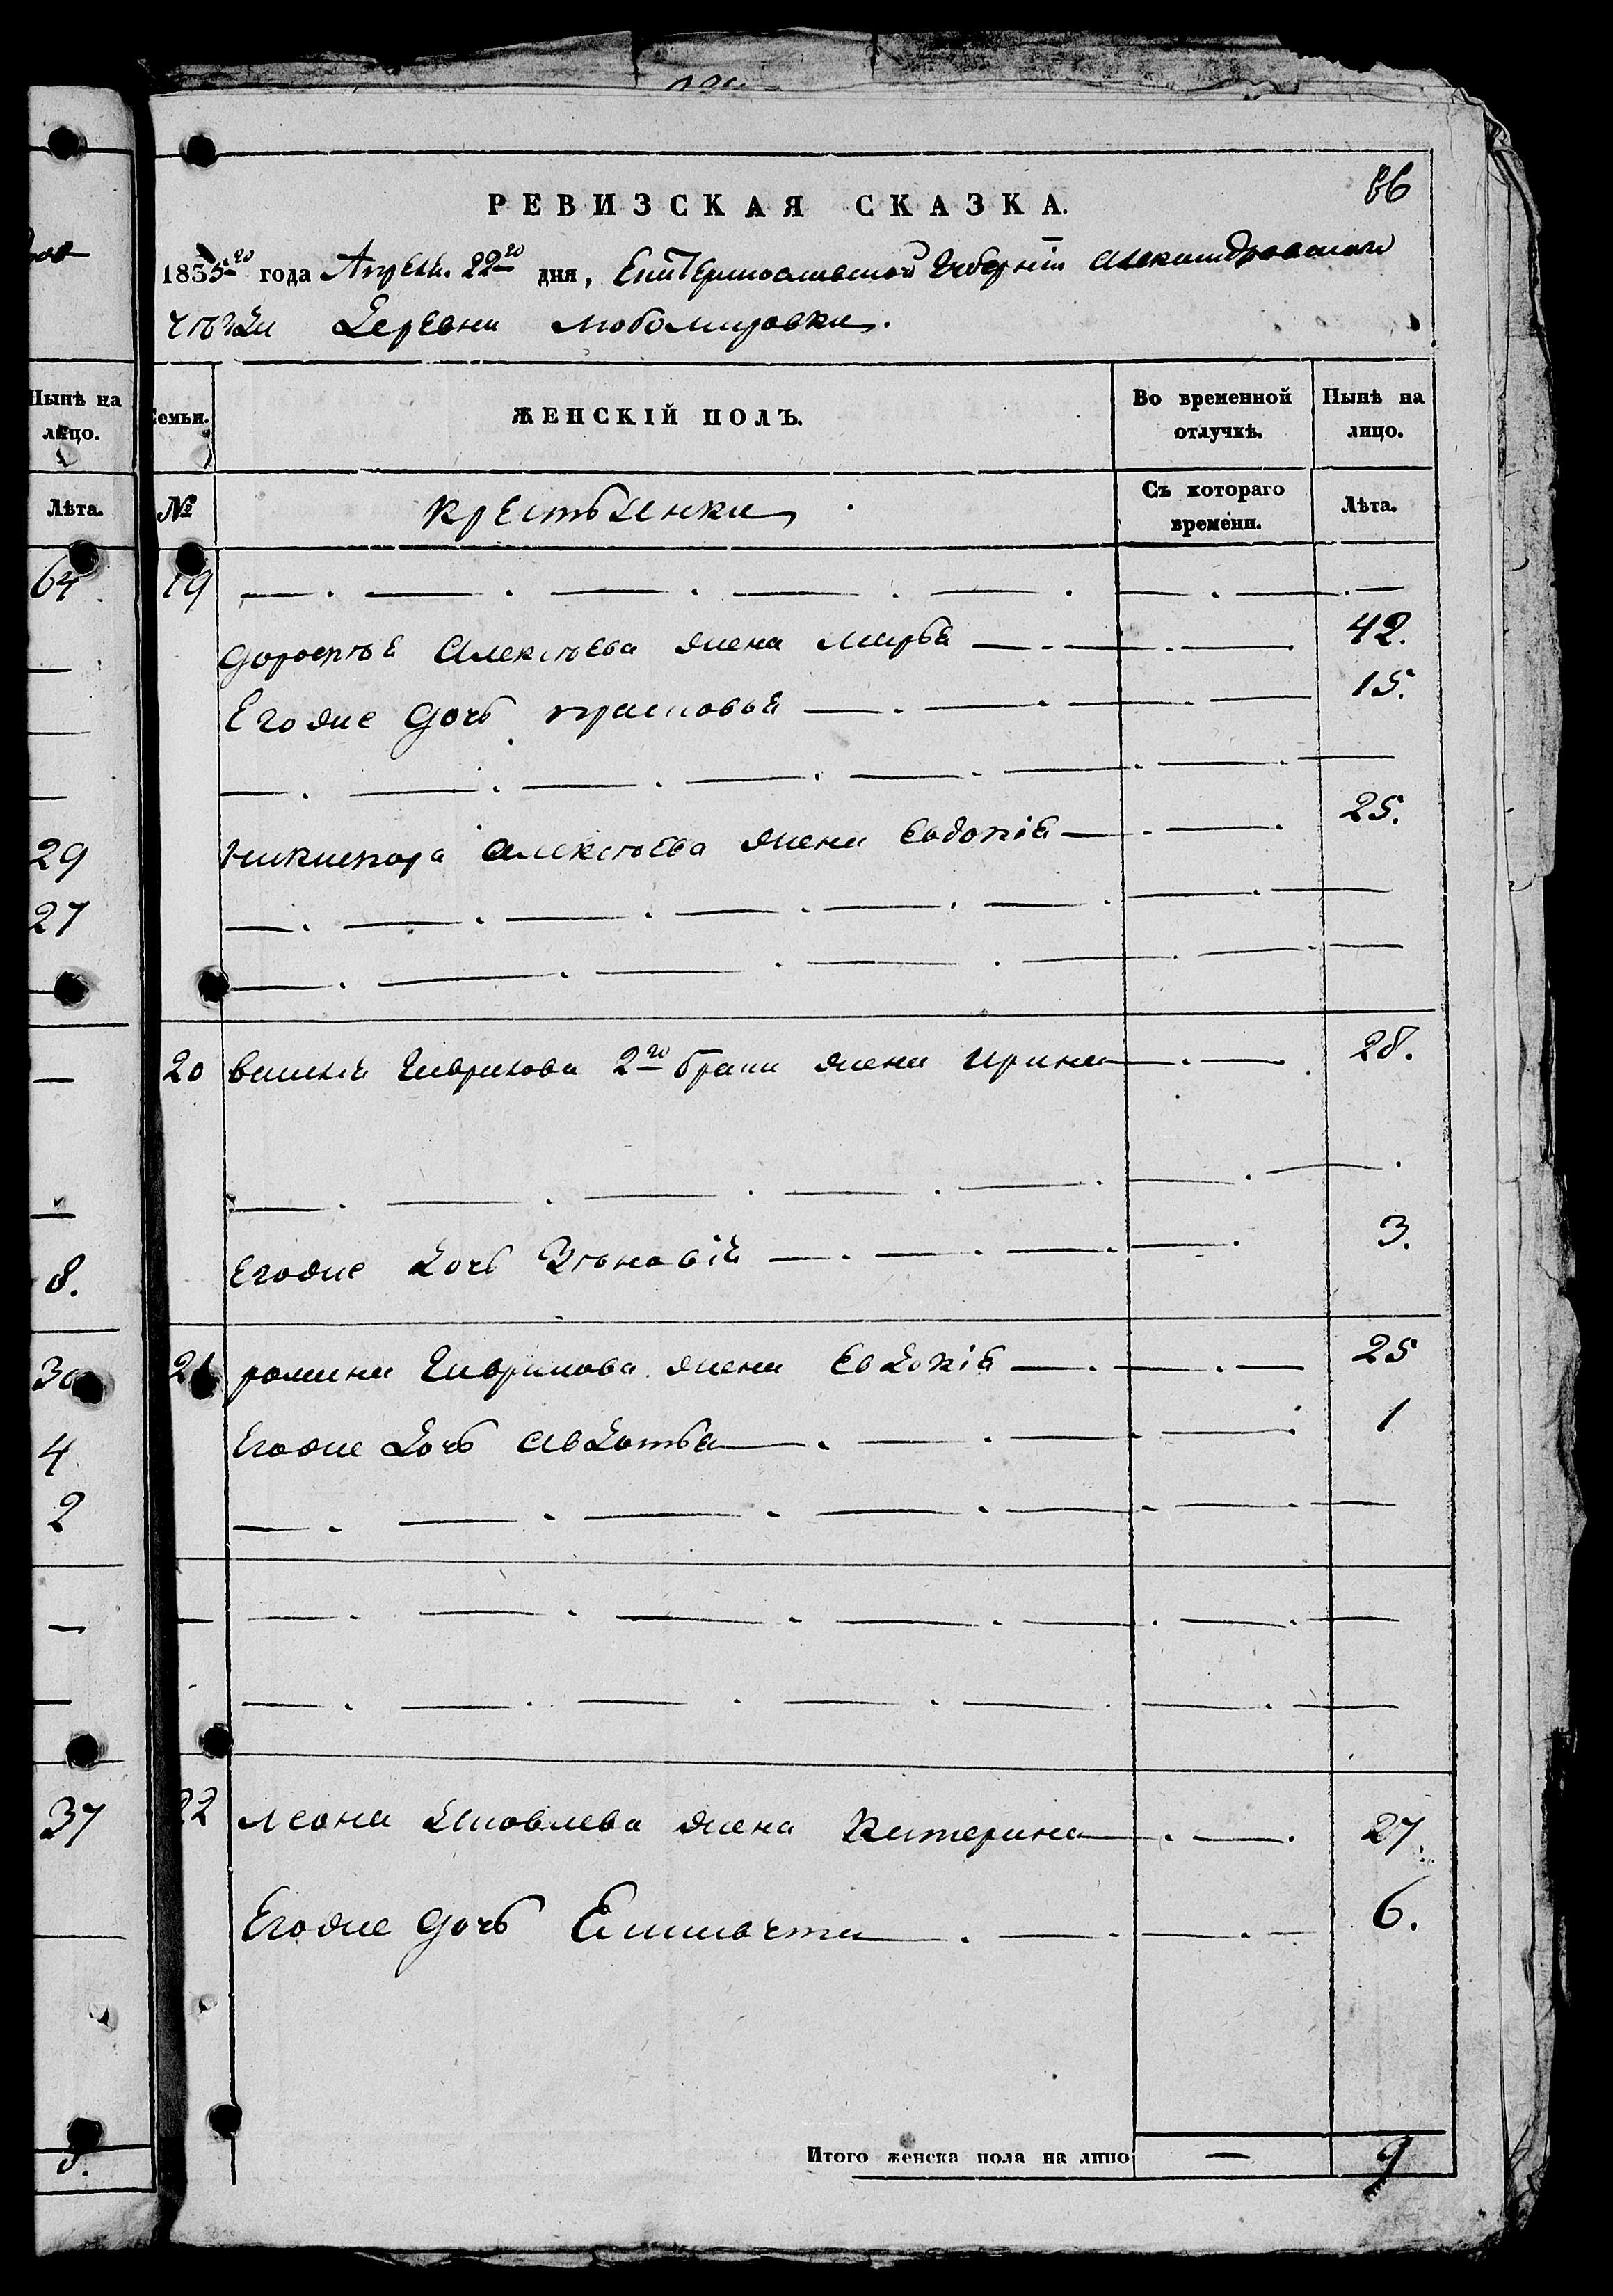 86
РЕВИЗСКАЯ СКАЗКА.
1835го года Апреля 22го дня, Екатеринославской Губерніи Александровскаго
уѣзда Деревни Любомировки.
Нынѣ на лицо.
Семьи.
ЖЕНСКІЙ ПОЛЪ.
Во временной отлучкѣ.
Нынѣ на лицо.
Лѣта.
№
Крестьянки
Съ котораго времени.
Лѣта.
64 19
Дорофѣя Алексѣева жена Марья 42.
Егоже дочь Прасковья 15.
Никифора Алексѣева жена Евдокія 25.
29
27
20 Василія Гаврилова 2го брака жена Ирина 28.
Егоже дочь Зѣновія 3.
8.
30 21 Романа Гаврилова жена Евдокія 25
4 Егоже дочь Авдотья 1
2
37 22 Леона Яковлева жена Катерина 27
Егоже дочь 6.
Итого женска пола на лицо — 9